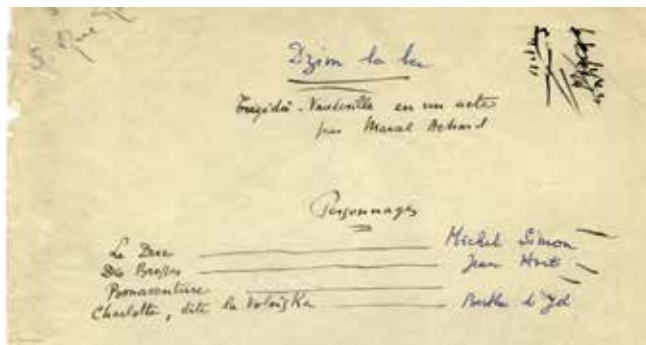 Dzim la la
Tragédie-Vaudeville en un acte
par Marcel Achard
Personnages
Le Duc Michel Simon
De Brosses Jean Hort
Bonaventure
Charlotte, dite la Volaïtka Berthe d'Yd